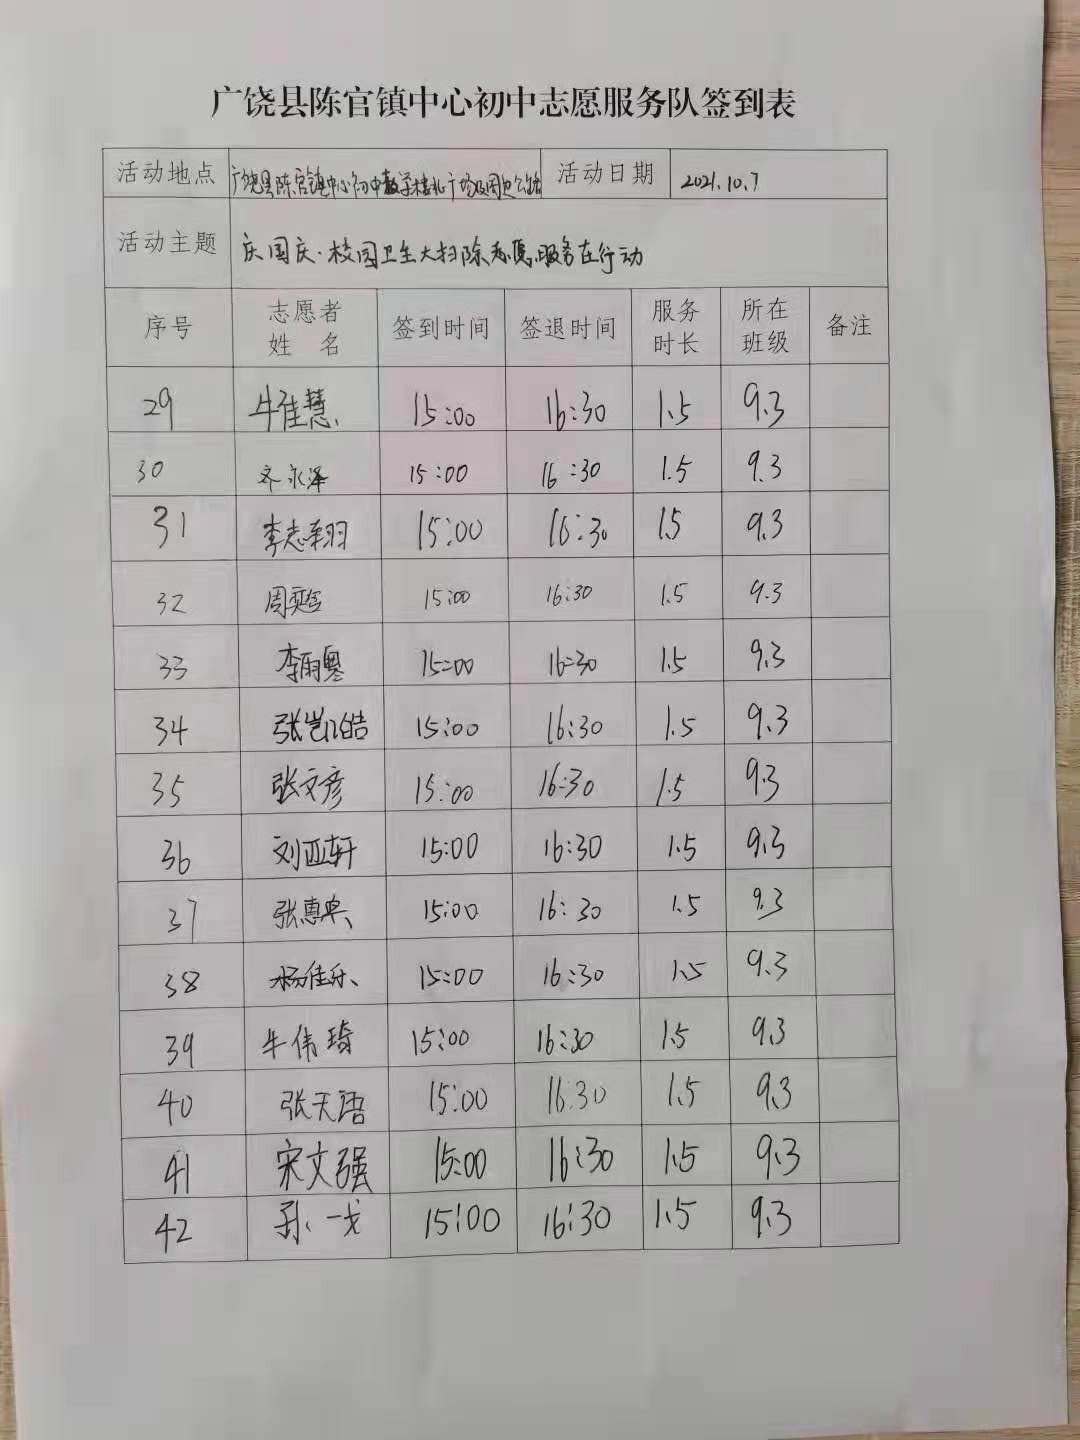 广饶县陈官镇中心初中志愿服务队签到表
活动地点 广饶县陈官镇中心初中教学楼北广场及周边公路 活动日期 2021.10.7
活动主题 庆国庆·校园卫生大扫除志愿服务在行动
序号 志愿者姓名 签到时间 签退时间 服务时长 所在班级 备注
29 牛佳慧 15:00 16:30 1.5 9.3
30 齐永泽 15:00 16:30 1.5 9.3
31 李志翔 15:00 16:30 1.5 9.3
32 周奕含 15:00 16:30 1.5 9.3
33 李雨 15:00 16:30 1.5 9.3
34 张凯皓 15:00 16:30 1.5 9.3
35 张文彦 15:00 16:30 1.5 9.3
36 刘亚轩 15:00 16:30 1.5 9.3
37 张惠 15:00 16:30 1.5 9.3
38 杨佳乐 15:00 16:30 1.5 9.3
39 牛伟琦 15:00 16:30 1.5 9.3
40 张天语 15:00 16:30 1.5 9.3
41 宋文强 15:00 16:30 1.5 9.3
42 孙一戈 15:00 16:30 1.5 9.3